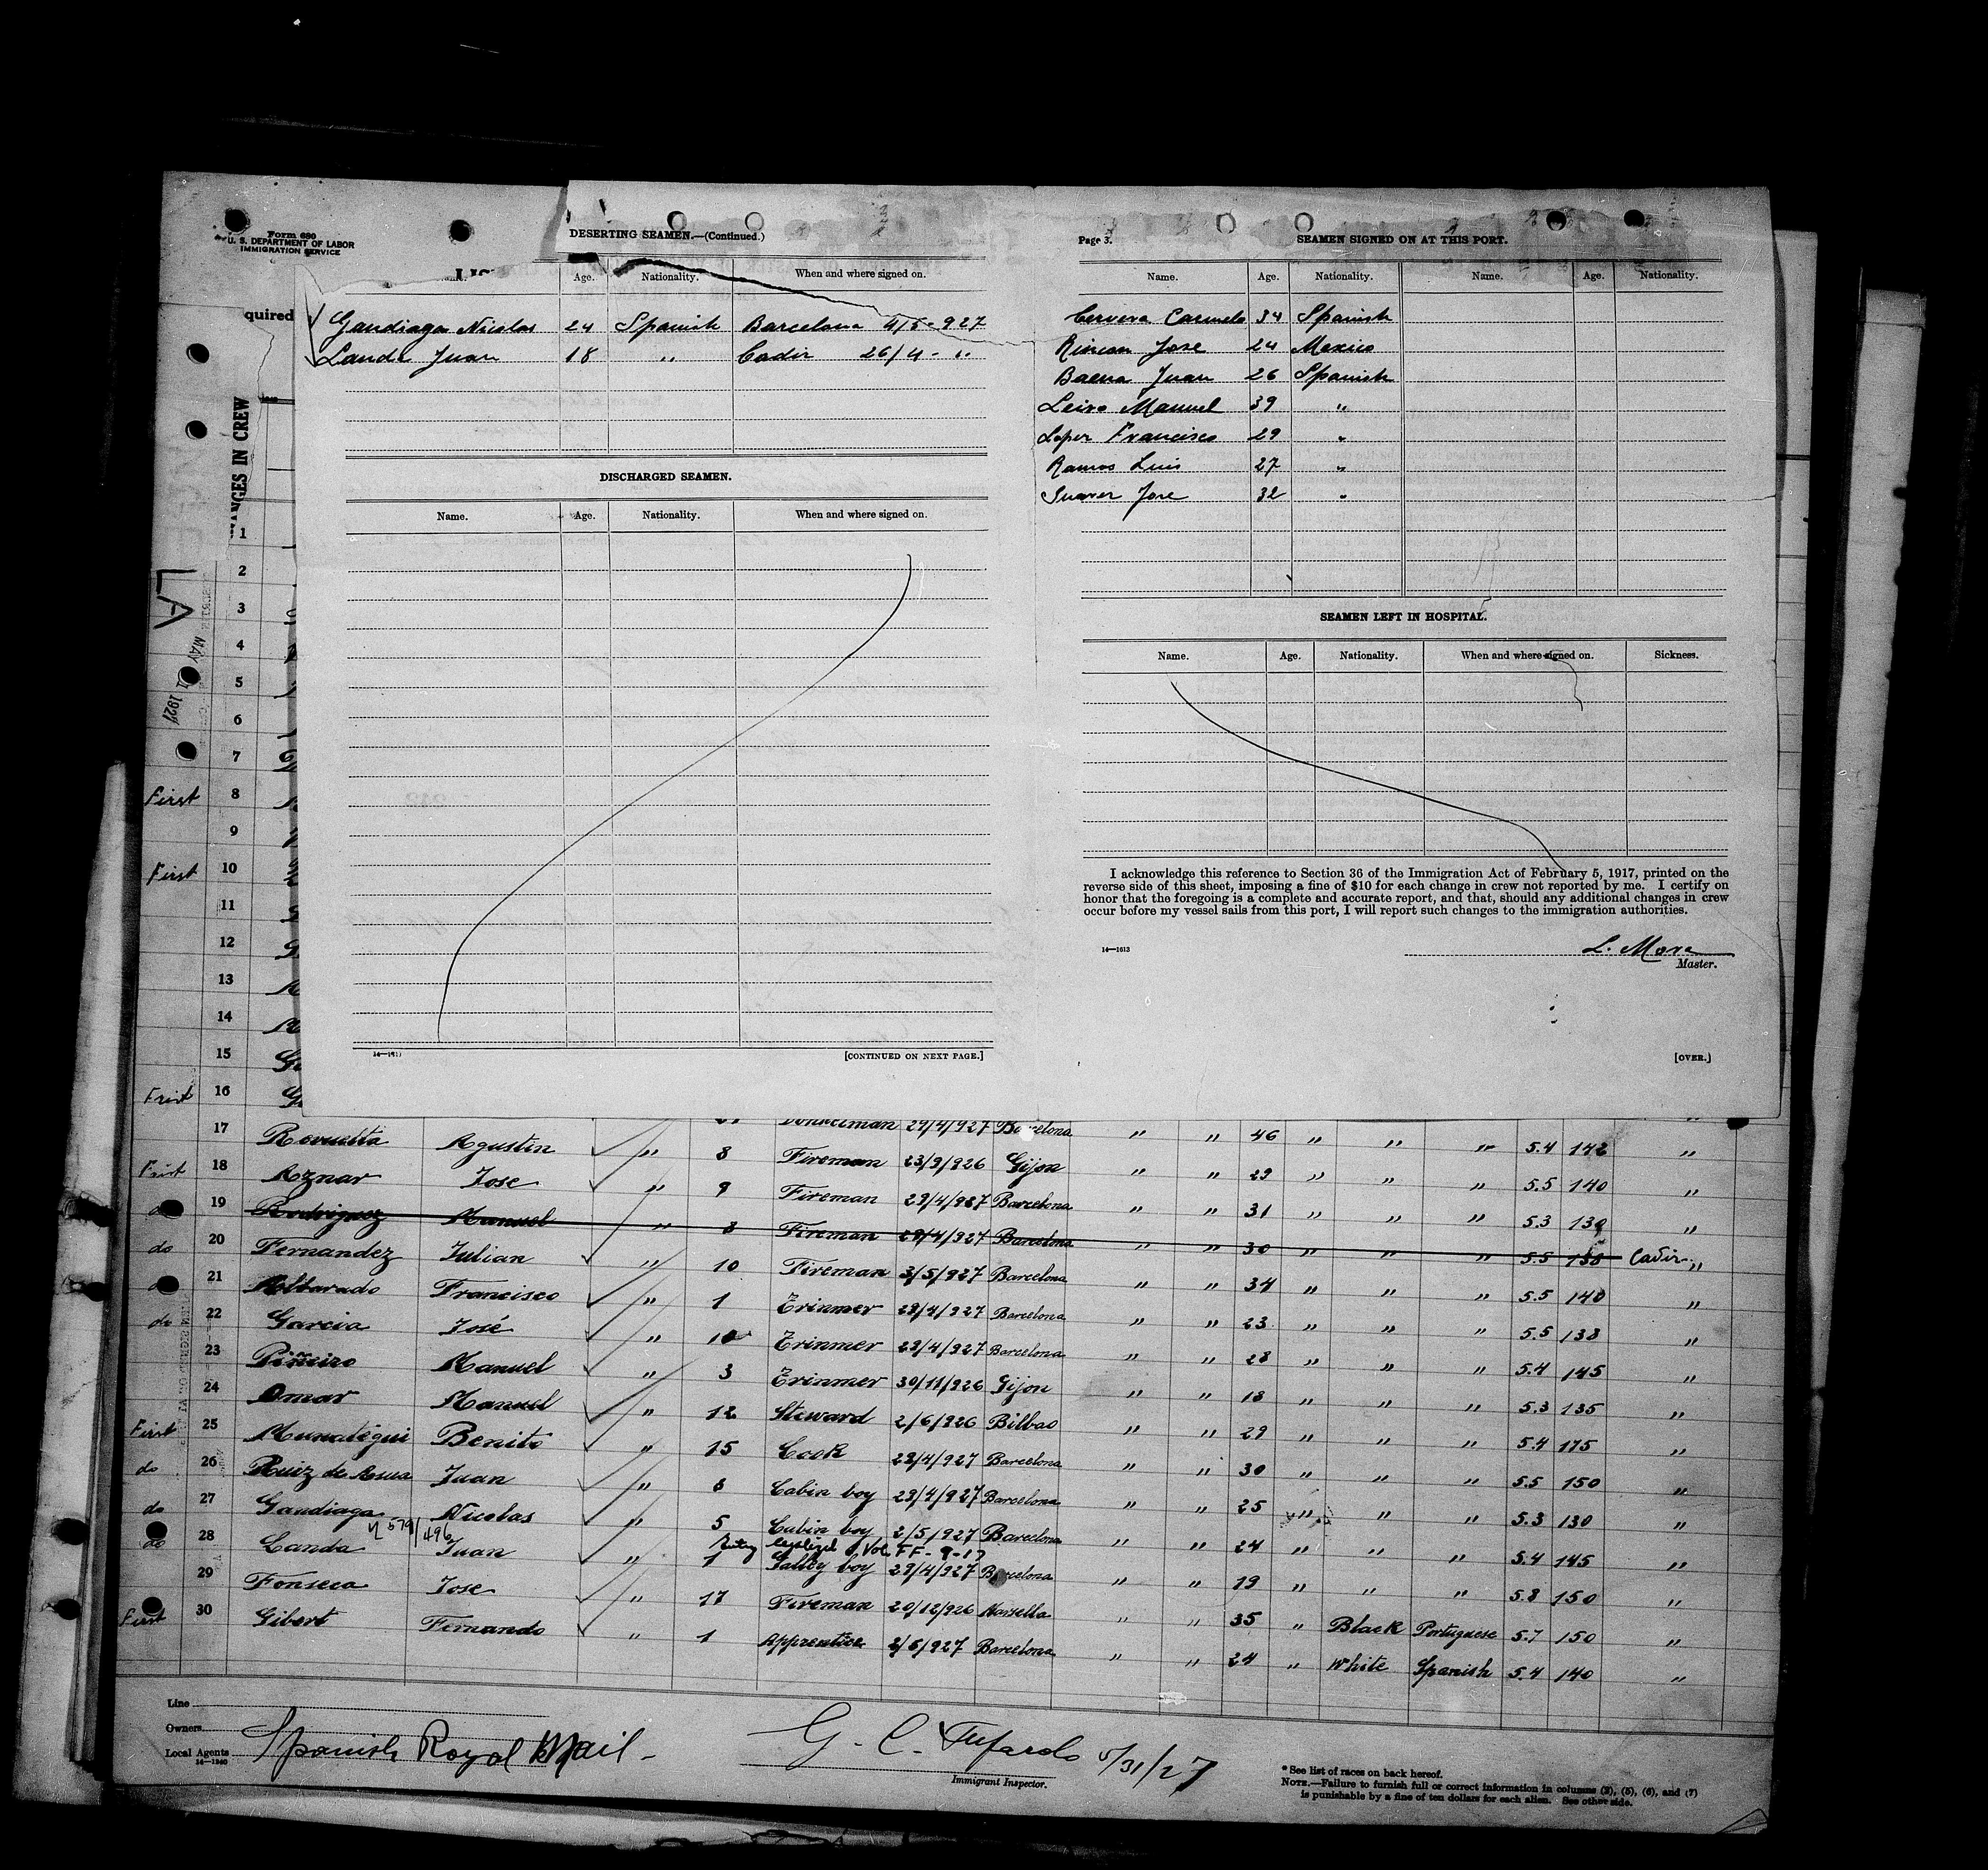 Form 680
U. S. DEPARTMENT OF LABOR
IMMIGRATION SERVICE
quired
DESERTING SEAMEN.—(Continued.)
Age. Nationality. When and where signed on.
Gandiaga Nicolas 24 Spanish Barcelona 4/5-927
Landa Juan 18 " Cadiz 26/4- "
DISCHARGED SEAMEN.
Name. Age. Nationality. When and where signed on.
[CONTINUED ON NEXT PAGE.]
Page 3. SEAMEN SIGNED ON AT THIS PORT.
Name. Age. Nationality. Name. Age. Nationality.
Cervera Carmelo 34 Spanish
Rincon Jose 24 Mexico
Baena Juan 26 Spanish
Leiro Manuel 39 "
Lopez Francisco 29 "
Ramos Luis 27 "
Suarez Jose 32 "
SEAMEN LEFT IN HOSPITAL.
Name. Age. Nationality. When and where signed on. Sickness.
I acknowledge this reference to Section 36 of the Immigration Act of February 5, 1917, printed on the
reverse side of this sheet, imposing a fine of $10 for each change in crew not reported by me. I certify on
honor that the foregoing is a complete and accurate report, and that, should any additional changes in crew
occur before my vessel sails from this port, I will report such changes to the immigration authorities.
14—1613
L. Mora
Master.
[OVER.]
ANGES IN CREW
LA
MAY 1927
1
2
3
4
5
6
7
First 8
9
First 10
11
12
13
14
15
First 16
29/4/927 Barcelona " " 46 " " " 5.4 142 "
17 Revuelta Agustin " 8 Fireman 23/9/926 Gijon " " 29 " " " 5.5 140 "
First 18 Aznar Jose " 9 Fireman 29/4/927 Barcelona " " 31 " " " 5.3 130 "
do 19 Rodriguez Manuel " 8 Fireman 29/4/927 Barcelona " " 30 " " " 5.5 158 Cadiz "
do 20 Fernandez Julian " 10 Fireman 3/5/927 Barcelona " " 34 " " " 5.5 140 "
21 Albarado Francisco " 1 Trinmer 29/4/927 Barcelona " " 23 " " " 5.5 138 "
do 22 Garcia José " 10 Trinmer 29/4/927 Barcelona " " 28 " " " 5.4 145 "
23 Piñeiro Manuel " 3 Trinmer 30/11/926 Gijon " " 18 " " " 5.3 135 "
24 Omar Manuel " 12 Steward 2/6/926 Bilbao " " 29 " " " 5.4 175 "
First 25 Munategui Benito " 15 Cook 29/4/927 Barcelona " " 30 " " " 5.5 150 "
do 26 Ruiz de Asua Juan " 8 Cabin boy 29/4/927 Barcelona " " 25 " " " 5.3 130 "
do 27 Gandiaga Nicolas " 5 Cabin boy 2/5/927 Barcelona " " 24 " " " 5.4 145 "
579/496 Vol FF-
do 28 Landa Juan " 1 Galley boy 29/4/927 Barcelona " " 19 " " " 5.8 150 "
29 Fonseca Jose " 17 Fireman 20/12/926 Marsella " " 35 " Black Portuguese 5.7 150 "
First 30 Gibert Fernando " 1 Apprentice 2/5/927 Barcelona " " 24 " White Spanish 5.4 140 "
Line
Owners
Local Agents Spanish Royal Mail
14—1240
G. C. Tufarolo 5/31/27
Immigrant Inspector.
* See list of races on back hereof.
NOTE.—Failure to furnish full or correct information in columns (3), (5), (6), and (7)
is punishable by a fine of ten dollars for each alien. See other side.